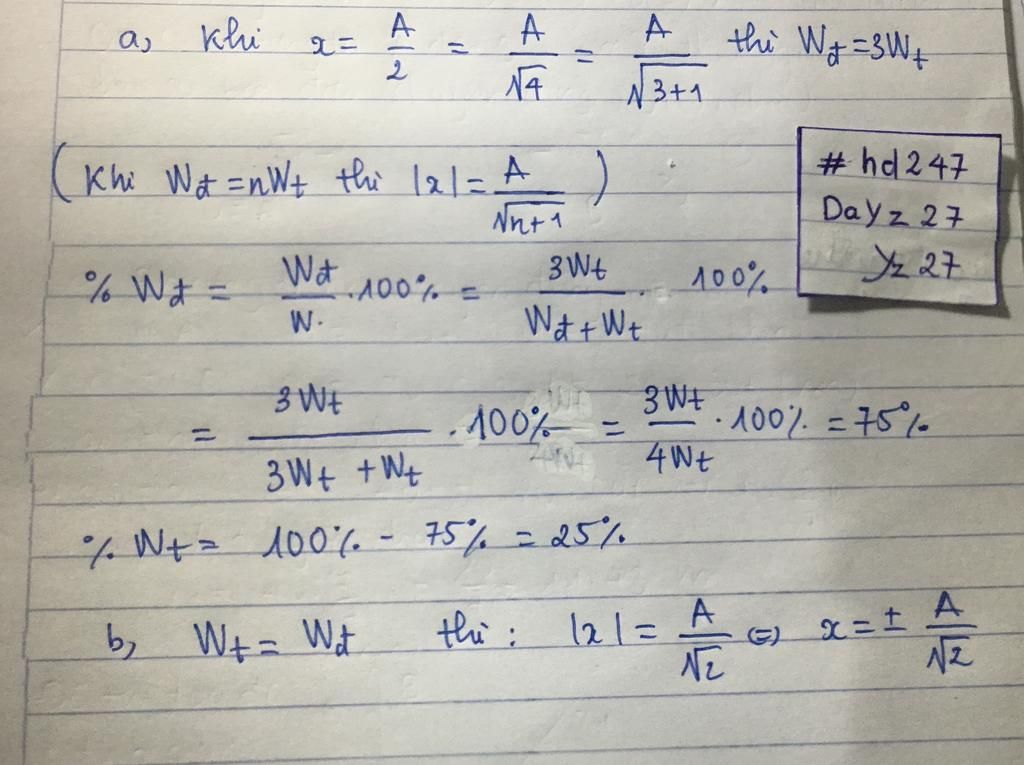 a, Khi x = A/2 = A/√4 = A/√(3+1) thì Wđ = 3Wt
(Khi Wđ = nWt thì |x| = A/√(n+1))
# hd247
Dayz 27
Yz 27
% Wđ = Wđ/W . 100% = 3Wt/(Wđ + Wt) . 100%
= 3Wt/(3Wt + Wt) . 100% = 3Wt/4Wt . 100% = 75%
% Wt = 100% - 75% = 25%
b, Wt = Wđ thì : |x| = A/√2 <=> x = ± A/√2